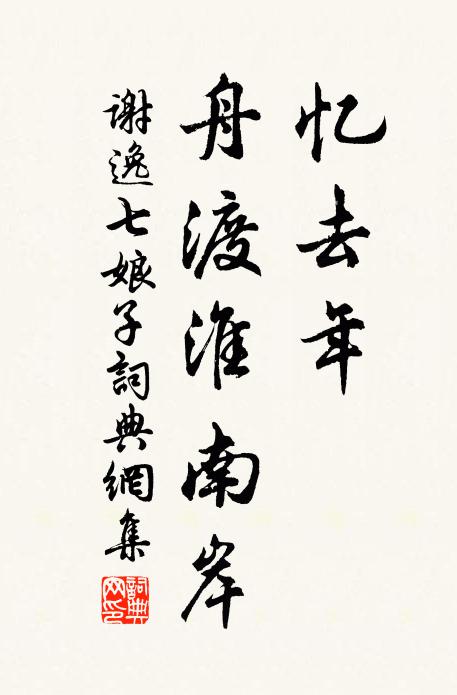 忆去年
舟渡淮南岸
謝逸七娘子詞典網集
詞典网印